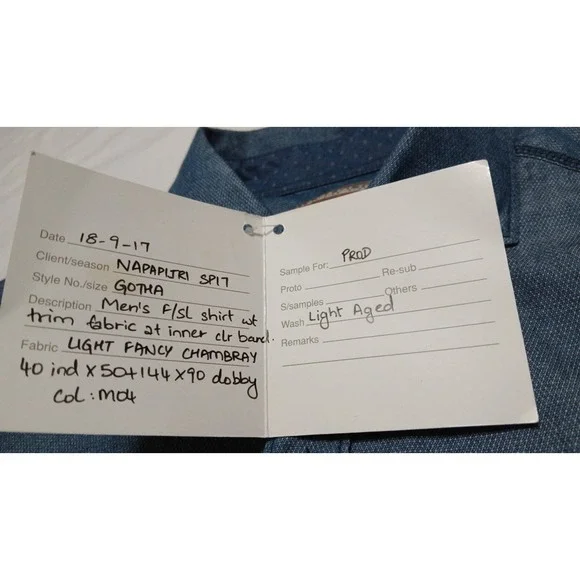 Date 18-9-17
Client/season NAPAPIJRI SP17
Style No./size GOTHA
Description Men's F/SL shirt wt
trim fabric at inner clr band.
Fabric LIGHT FANCY CHAMBRAY
40 ind x 50+144 x 90 dobby
Col: M04
Sample For: PROD
Proto Re-sub
S/samples Others
Wash Light Aged
Remarks